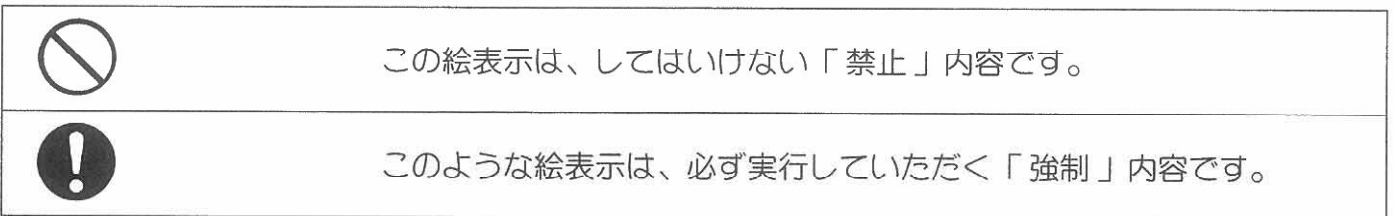 この絵表示は、してはいけない「禁止」内容です。
このような絵表示は、必ず実行していただく「強制」内容です。